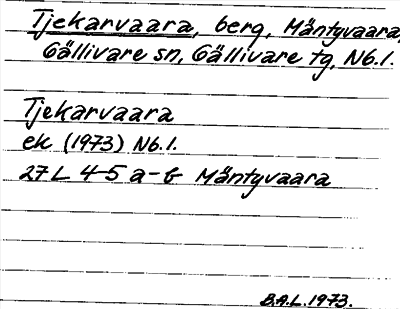 Tjekarvaara, berg, Mäntyvaara,
Gällivare sn, Gällivare tg, Nb.l.
Tjekarvaara
ek (1973) Nb.l.
27L 4-5 a-b Mäntyvaara
B.A.L. 1973.